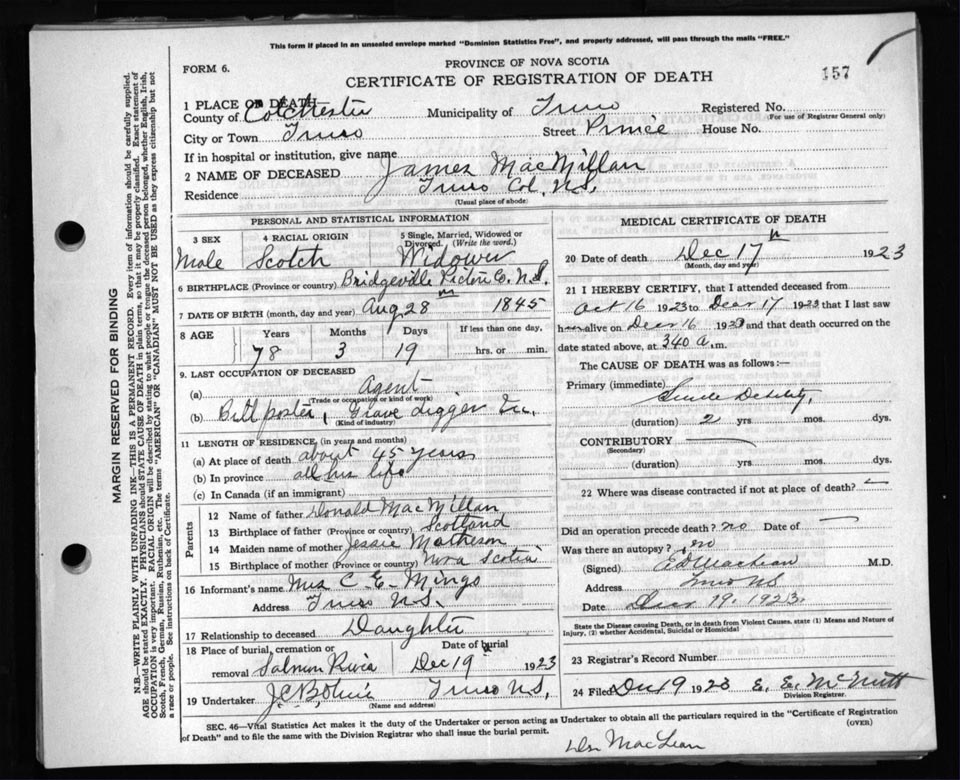 This form if placed in an unsealed envelope marked "Dominion Statistics Free", and properly addressed, will pass through the mails "FREE."
FORM 6.
PROVINCE OF NOVA SCOTIA
CERTIFICATE OF REGISTRATION OF DEATH
157
1 PLACE OF DEATH
County of Colchester Municipality of Truro Registered No.
(For use of Registrar General only)
City or Town Truro Street Prince House No.
If in hospital or institution, give name
2 NAME OF DECEASED James MacMillan
Residence Truro Col. N.S.
(Usual place of abode)
PERSONAL AND STATISTICAL INFORMATION
3 SEX 4 RACIAL ORIGIN 5 Single, Married, Widowed or Divorced. (Write the word.)
Male Scotch Widower
6 BIRTHPLACE (Province or country) Bridgeville Pictou Co. N.S.
7 DATE OF BIRTH (month, day and year) Aug 28 1845
8 AGE Years Months Days If less than one day,
78 3 19 hrs. or min.
9. LAST OCCUPATION OF DECEASED
(a) Agent
(Trade or occupation or kind of work)
(b) Bill poster, Grave digger Etc.
(Kind of industry)
11 LENGTH OF RESIDENCE, (in years and months)
(a) At place of death about 45 years
(b) In province all his life
(c) In Canada (if an immigrant)
Parents
12 Name of father Donald MacMillan
13 Birthplace of father (Province or country) Scotland
14 Maiden name of mother Jessie Matheson
15 Birthplace of mother (Province or country) Nova Scotia
16 Informant's name Mrs C. E. Mingo
Address Truro N.S.
17 Relationship to deceased Daughter
18 Place of burial, cremation or removal Salmon River Date of burial Dec 19 1923
19 Undertaker Truro N.S.
(Name and address)
MEDICAL CERTIFICATE OF DEATH
20 Date of death Dec 17th 1923
(Month, day and year)
21 I HEREBY CERTIFY, that I attended deceased from
Oct 16 1923 to Decr 17 1923 that I last saw
him alive on Decr 16 1923 and that death occurred on
date stated above, at 340 a.m.
The CAUSE OF DEATH was as follows:—
Primary (immediate) Senile Debility
(duration) 2 yrs. mos. dys.
CONTRIBUTORY
(Secondary)
(duration) yrs. mos. dys.
22 Where was disease contracted if not at place of death?
Did an operation precede death? no Date of
Was there an autopsy? no
(Signed) MacLean M.D.
Address Truro NS
Date Decr 19. 1923
State the Disease causing Death, or in death from Violent Causes, state (1) Means and Nature of Injury, (2) whether Accidental, Suicidal or Homicidal
23 Registrar's Record Number
24 Filed Dec 19 1923 E. E. McNutt
Division Registrar.
SEC. 46—Vital Statistics Act makes it the duty of the Undertaker or person acting as Undertaker to obtain all the particulars required in the "Certificate of Registration of Death" and to file the same with the Division Registrar who shall issue the burial permit. (OVER)
Dr. MacLean
MARGIN RESERVED FOR BINDING
N.B.—WRITE PLAINLY WITH UNFADING INK—THIS IS A PERMANENT RECORD. Every item of information should be carefully supplied.
AGE should be stated EXACTLY. PHYSICIANS should STATE CAUSE OF DEATH in plain terms, so that it may be properly classified. Exact statement of
OCCUPATION is very important. RACIAL ORIGIN will be described by stating to what people or tongue the deceased person belonged, whether English, Irish,
Scotch, French, German, Russian, Ruthenian, etc. The terms "AMERICAN" OR "CANADIAN" MUST NOT BE USED as they express citizenship but not
a race or people. See instructions on back of Certificate.